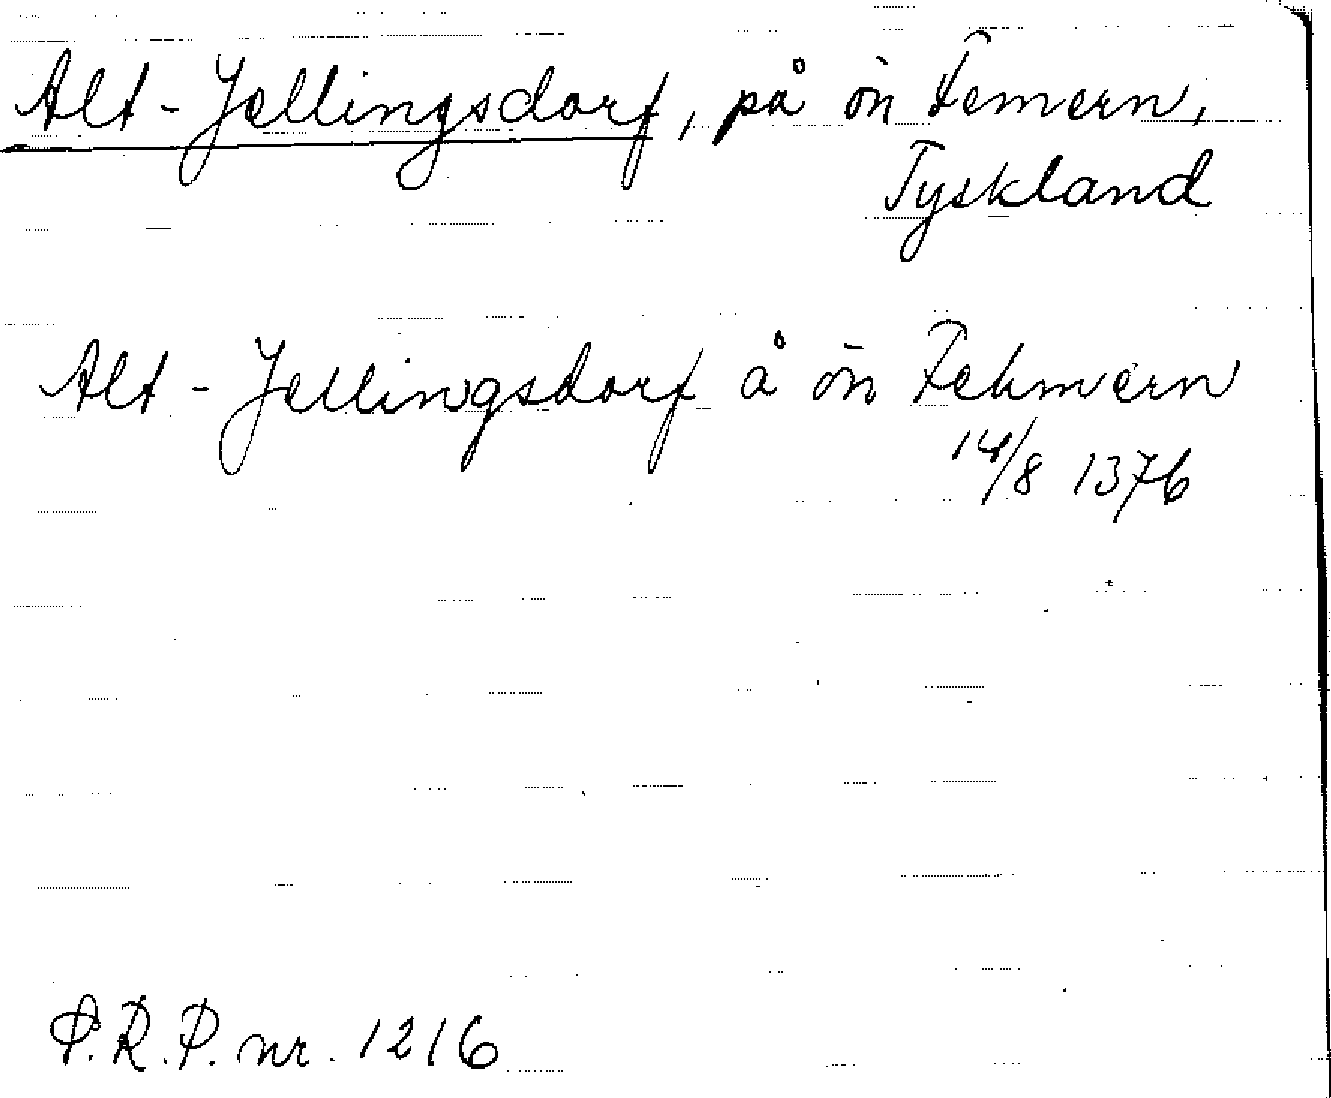 Alt-Jellingsdorf, på ön Femern,
Tyskland
Alt-Jellingsdorf å ön Fehmern
14/8 1376
P.R.P. nr. 1216